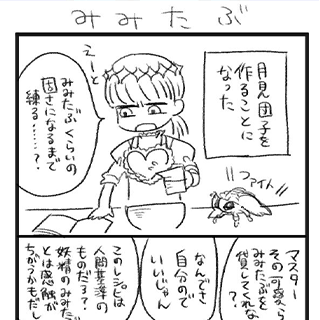 みみたぶ
月見団子を
作ることに
なった
えーと
みみたぶくらいの
固さになるまで
練る……？
ファイト
マスター
その可愛ら
みみたぶを
貸してくれな
なんでさ
自分ので
いいじゃん
このレシピは
人間基準の
ものだろ？
妖精のみみた
とは感触が
ちがうかもだし